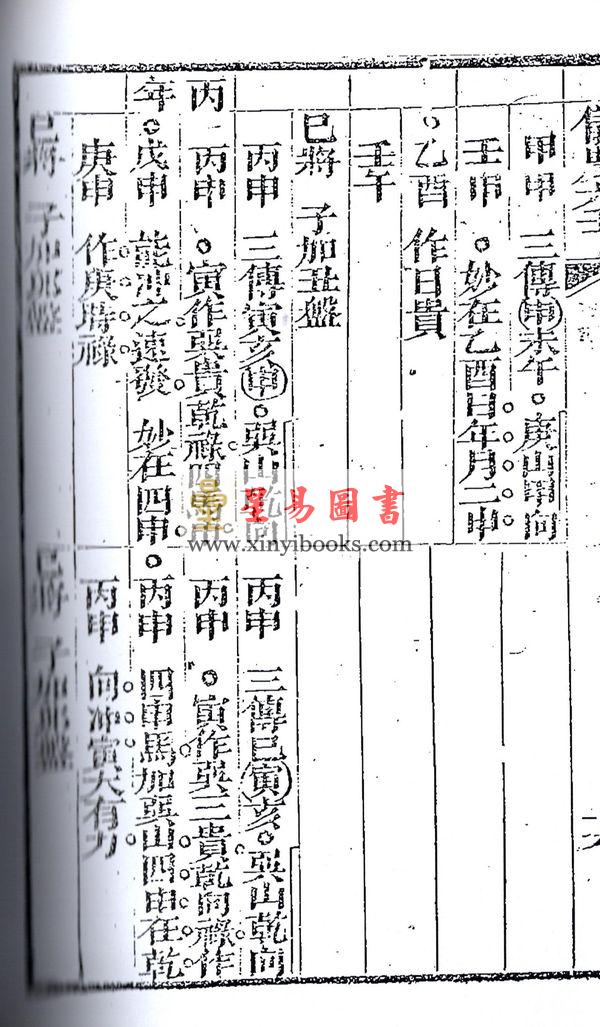 甲申 三傳申未午。庚山甲向
壬申 。妙在乙酉日年月二申
。乙酉 作日貴
壬午
巳將 子加丑盤
丙申 三傳寅亥申。巽山乾向
丙申 。寅作巽貴乾祿四馬申
。戊申 能沖之速發 妙在四申
庚申 作庚時祿
巳將 子加卯盤
丙
年
丙申 三傳巳寅亥。巽山乾向
丙申 。寅作巽三貴乾向祿作
。丙申 四申馬加巽山四申在乾
丙申 向沖寅大有力
巳將 子加卯盤
星易圖書
www.xinyibooks.com